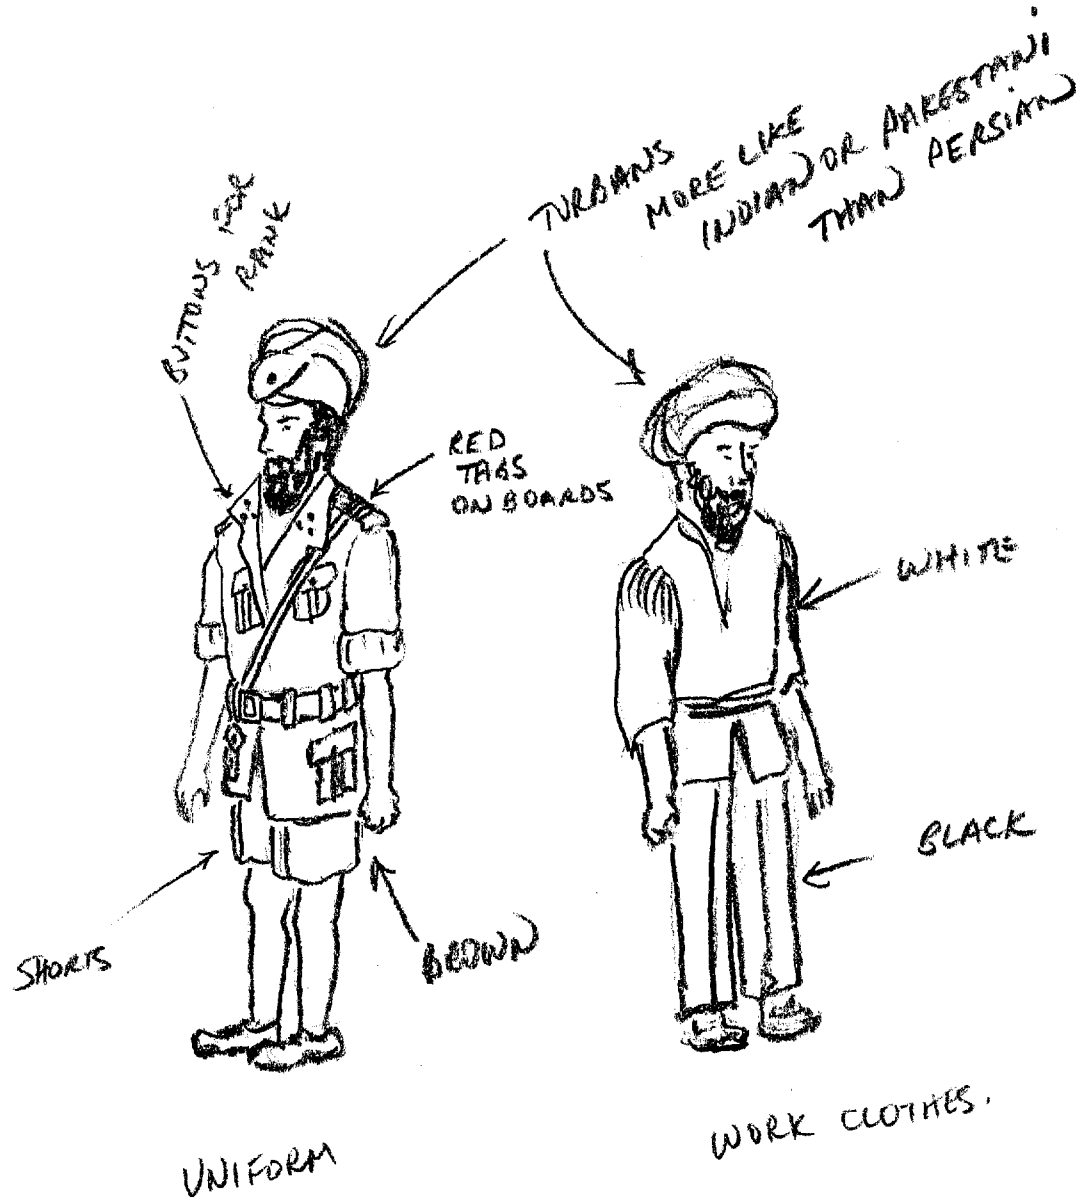 TURBANS
MORE LIKE
INDIAN OR PAKESTANI
THAN PERSIAN
BUTTONS FOR
RANK
RED
TAGS
ON BOARDS
WHITE
BLACK
SHORTS
BROWN
UNIFORM
WORK CLOTHES.